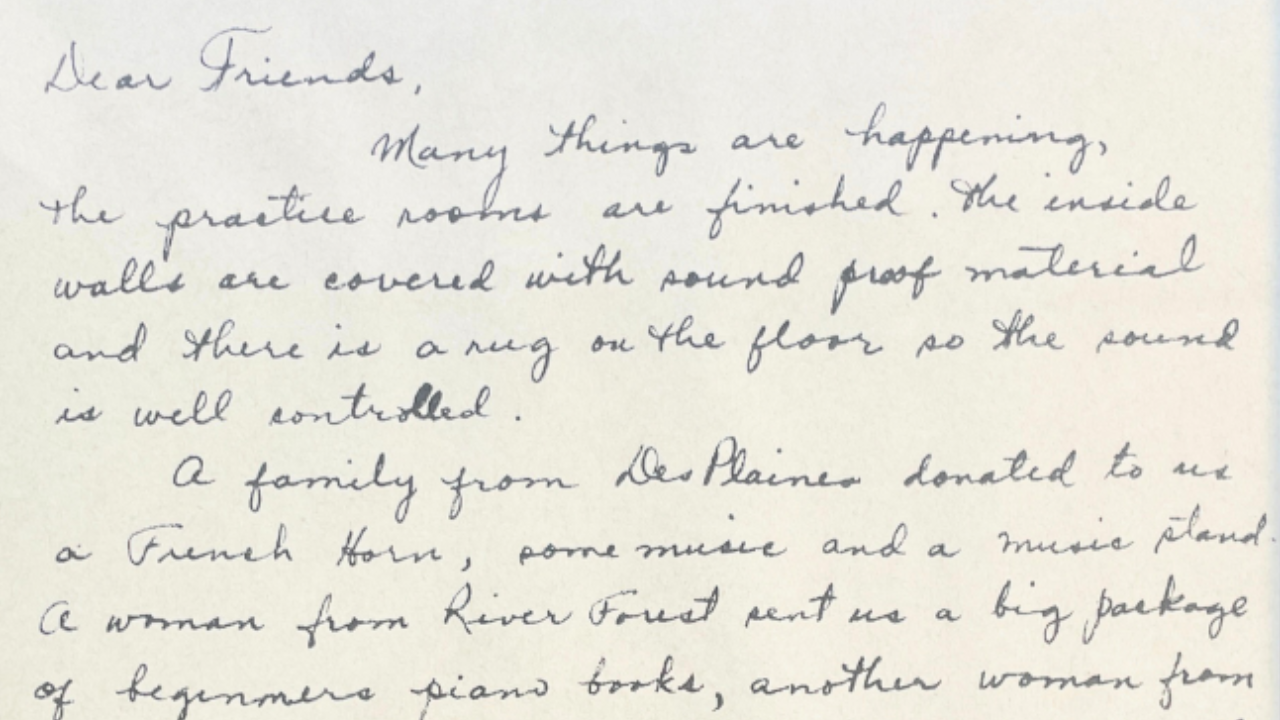 Dear Friends,
Many things are happening,
the practice rooms are finished. The inside
walls are covered with sound proof material
and there is a rug on the floor so the sound
is well controlled.
A family from Des Plaines donated to us
a French Horn, some music and a music stand.
A woman from River Forest sent us a big package
of beginners piano books, another woman from